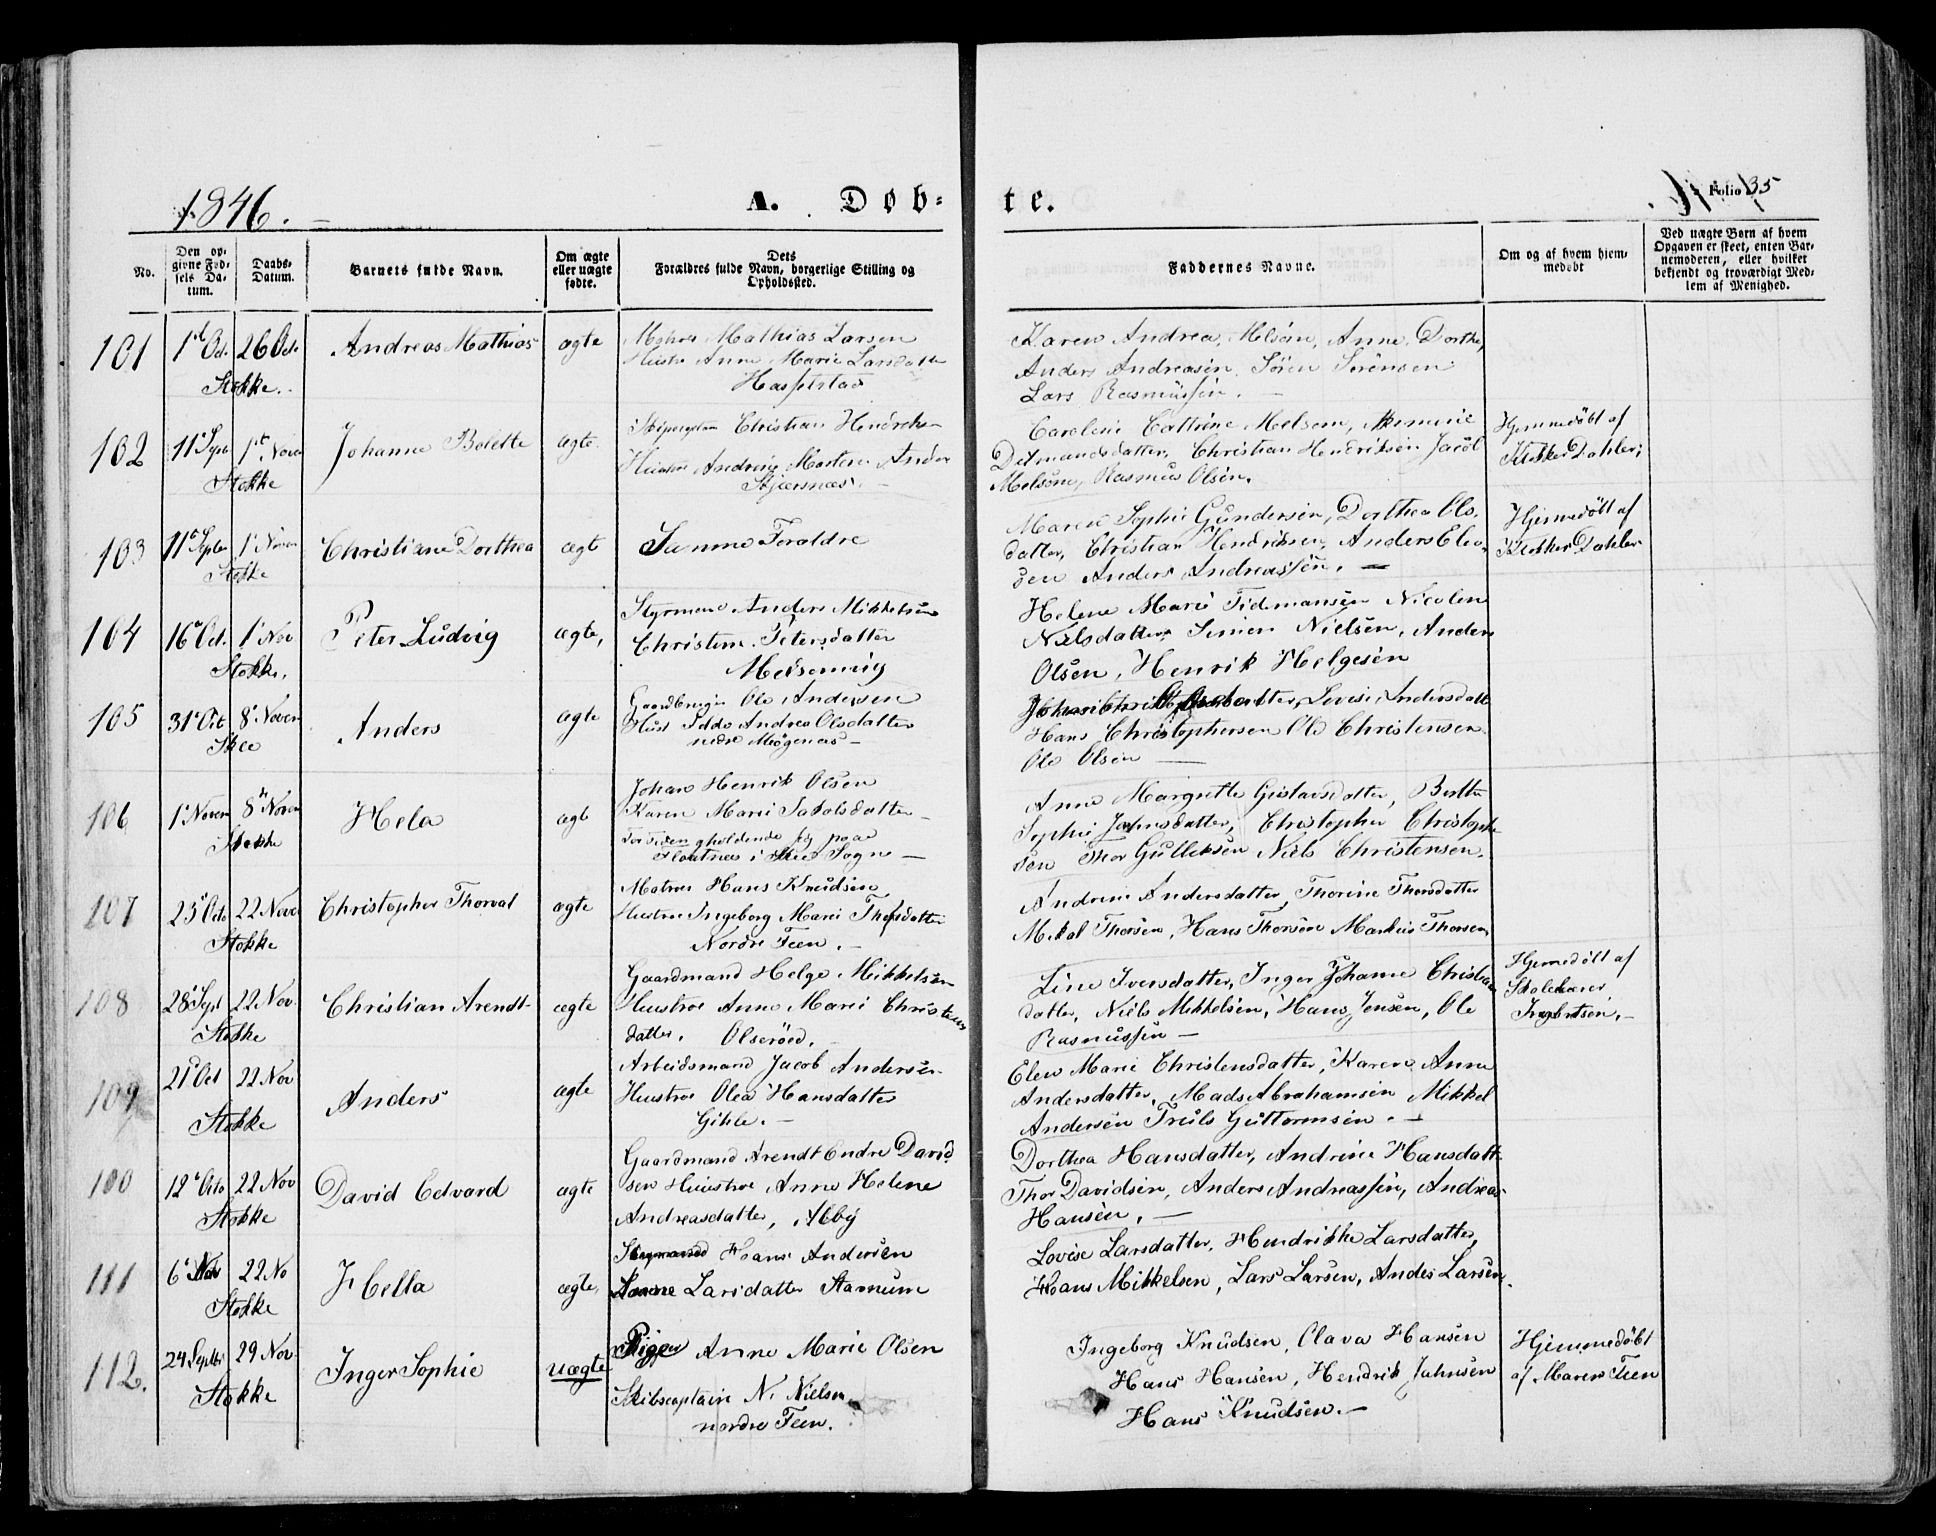 1846. A. Døb- te. Folio 35
No. Den opgivne Fødsels Datum. Daabs-Datum. Barnets fulde Navn. Om ægte eller uægte fødte. Dets Forældres fulde Navn, borgerlige Stilling og Opholdssted. Faddernes Navne. Om og af hvem hjemmedøbt Ved uægte Børn af hvem Opgaven er skeet, enten Barnemoderen, eller hvilket bekjendt og troværdigt Medlem af Menighed.
101 1d Oct. 26 Oct. Stokke. Andreas Mathias ægte
Mathias Larsen
Hustro Anne Marie Larsdatter
Karen Andrea Melsøm, Anne Dorthe,
Anders Andreasen, Sören Sörensen
Lars Rasmussen.
102 11 Sept 1st Novem Stokke Johanne Bolette ægte
Christian Hendrik
Hustroe Andrine
Stjærsnæs.
Carolene Cattrine Melsøm,
Ditmandsdatter, Christian Hendriksen Jacob
Melsøm, Rasmus Olsen.
Hjemmedöbt af
Klokker Dahler,
103 11 Septer 1 Novem Stokke Christiane Dorthea ægt
Samme Foraldre
Maren Sophie Gundersen, Dorthea Ols-
datter, Christian Hendriksen, Anders
sen Anders Andreassen. —
Hjemmedöbt af
Klokker Dahler
104 16 Oct. 1 Nov Stokke. Peter Ludvig ægte,
Styrmand Anders Mikkelsen
Christine Petersdatter
Melsomvig
Helene Marie Tidmansen Nicolen
Nilsdatter, Simen Nielsen, Anders
Olsen, Henrik Helgesen
105 31 Oct 8 Novem Skee Anders ægte
Gaardbruger Ole Andersen
Hust Idde Andrea Olsdatter
nedre Mögenæs —
Lovise Andersdatt
Hans Christophersen Ole Christensen
Ole Olsen —
106 1 Novem 8 Novem Stokke Hela ægt
Johan Henrik Olsen
Karen Marie Jakobsdatter —
i Skee Sogn —
Anne Margrette Gustavsdatter, Berthe
Sophie Jahnsdatter, Christopher Christophe
sen Thor Gulliksen Niels Christensen.
107 23 Octo 22 Nove Stokke Christopher Thorval ægte
Matros Hans Knudsen
Hustroe Ingeborg Marie Thorsdatter
Nordre Feen. —
Andrine Andersdatter, Thorine Thorsdatter
Mikal Thorsen, Hans Thorsen Markus Thorsen
108 28 Sept 22 Nov. Stokke Christian Arendt- ægte
Gaardmand Helge Mikkelsen
Huustroe Anne Marie Christens
datter. Olseröed.
Line Iversdatter, Inger Johanne Christian
datter, Niels Mikkelsen, Hans Jensen, Ole
Rasmussen —
Hjemedöbt af
Skolelærer
Ingbretsen. —
109 21 Oct 22 Nov Stokke Anders ægte
Arbeidsmand Jacob Andersen
Huustroe Olea Hansdatter
Gihle. —
Elen Marie Christensdatter, Karen Anne
Andersdatter, Mads Abrahamsen Mikkel
Andersen Truls Guttormsen. —
100 12 Octo 22 Nov Stokke David Edvard ægte
Gaardmand Arendt Endre David
sen Huustroe Anne Helene
Andreasdatter, Alby
Dorthea Hansdatter, Andrine Hansdatt
Thor Davidsen, Anders Andreassen, Andreas
Hansen. —
111 6 Nov 22 No Stokke Hella ægte,
Styrmand Hans Andersen
Larsdatter Stamnum
Lovise Larsdatter, Hendrikke Larsdatter,
Hans Mikkelsen, Lars Larsen, Andes Larsen.
112. 24 Septbr 29 Nov. Stokke Inger Sophie uægte
Pige Anne Marie Olsen
Skibscaptain N. Nielsen
nordre Feen.
Ingeborg Knudsen, Clava Hansen
Hans Hansen, Hendrik Jahnsen
Hans Knudsen. —
Hjemmedöbt
af Maren Feen